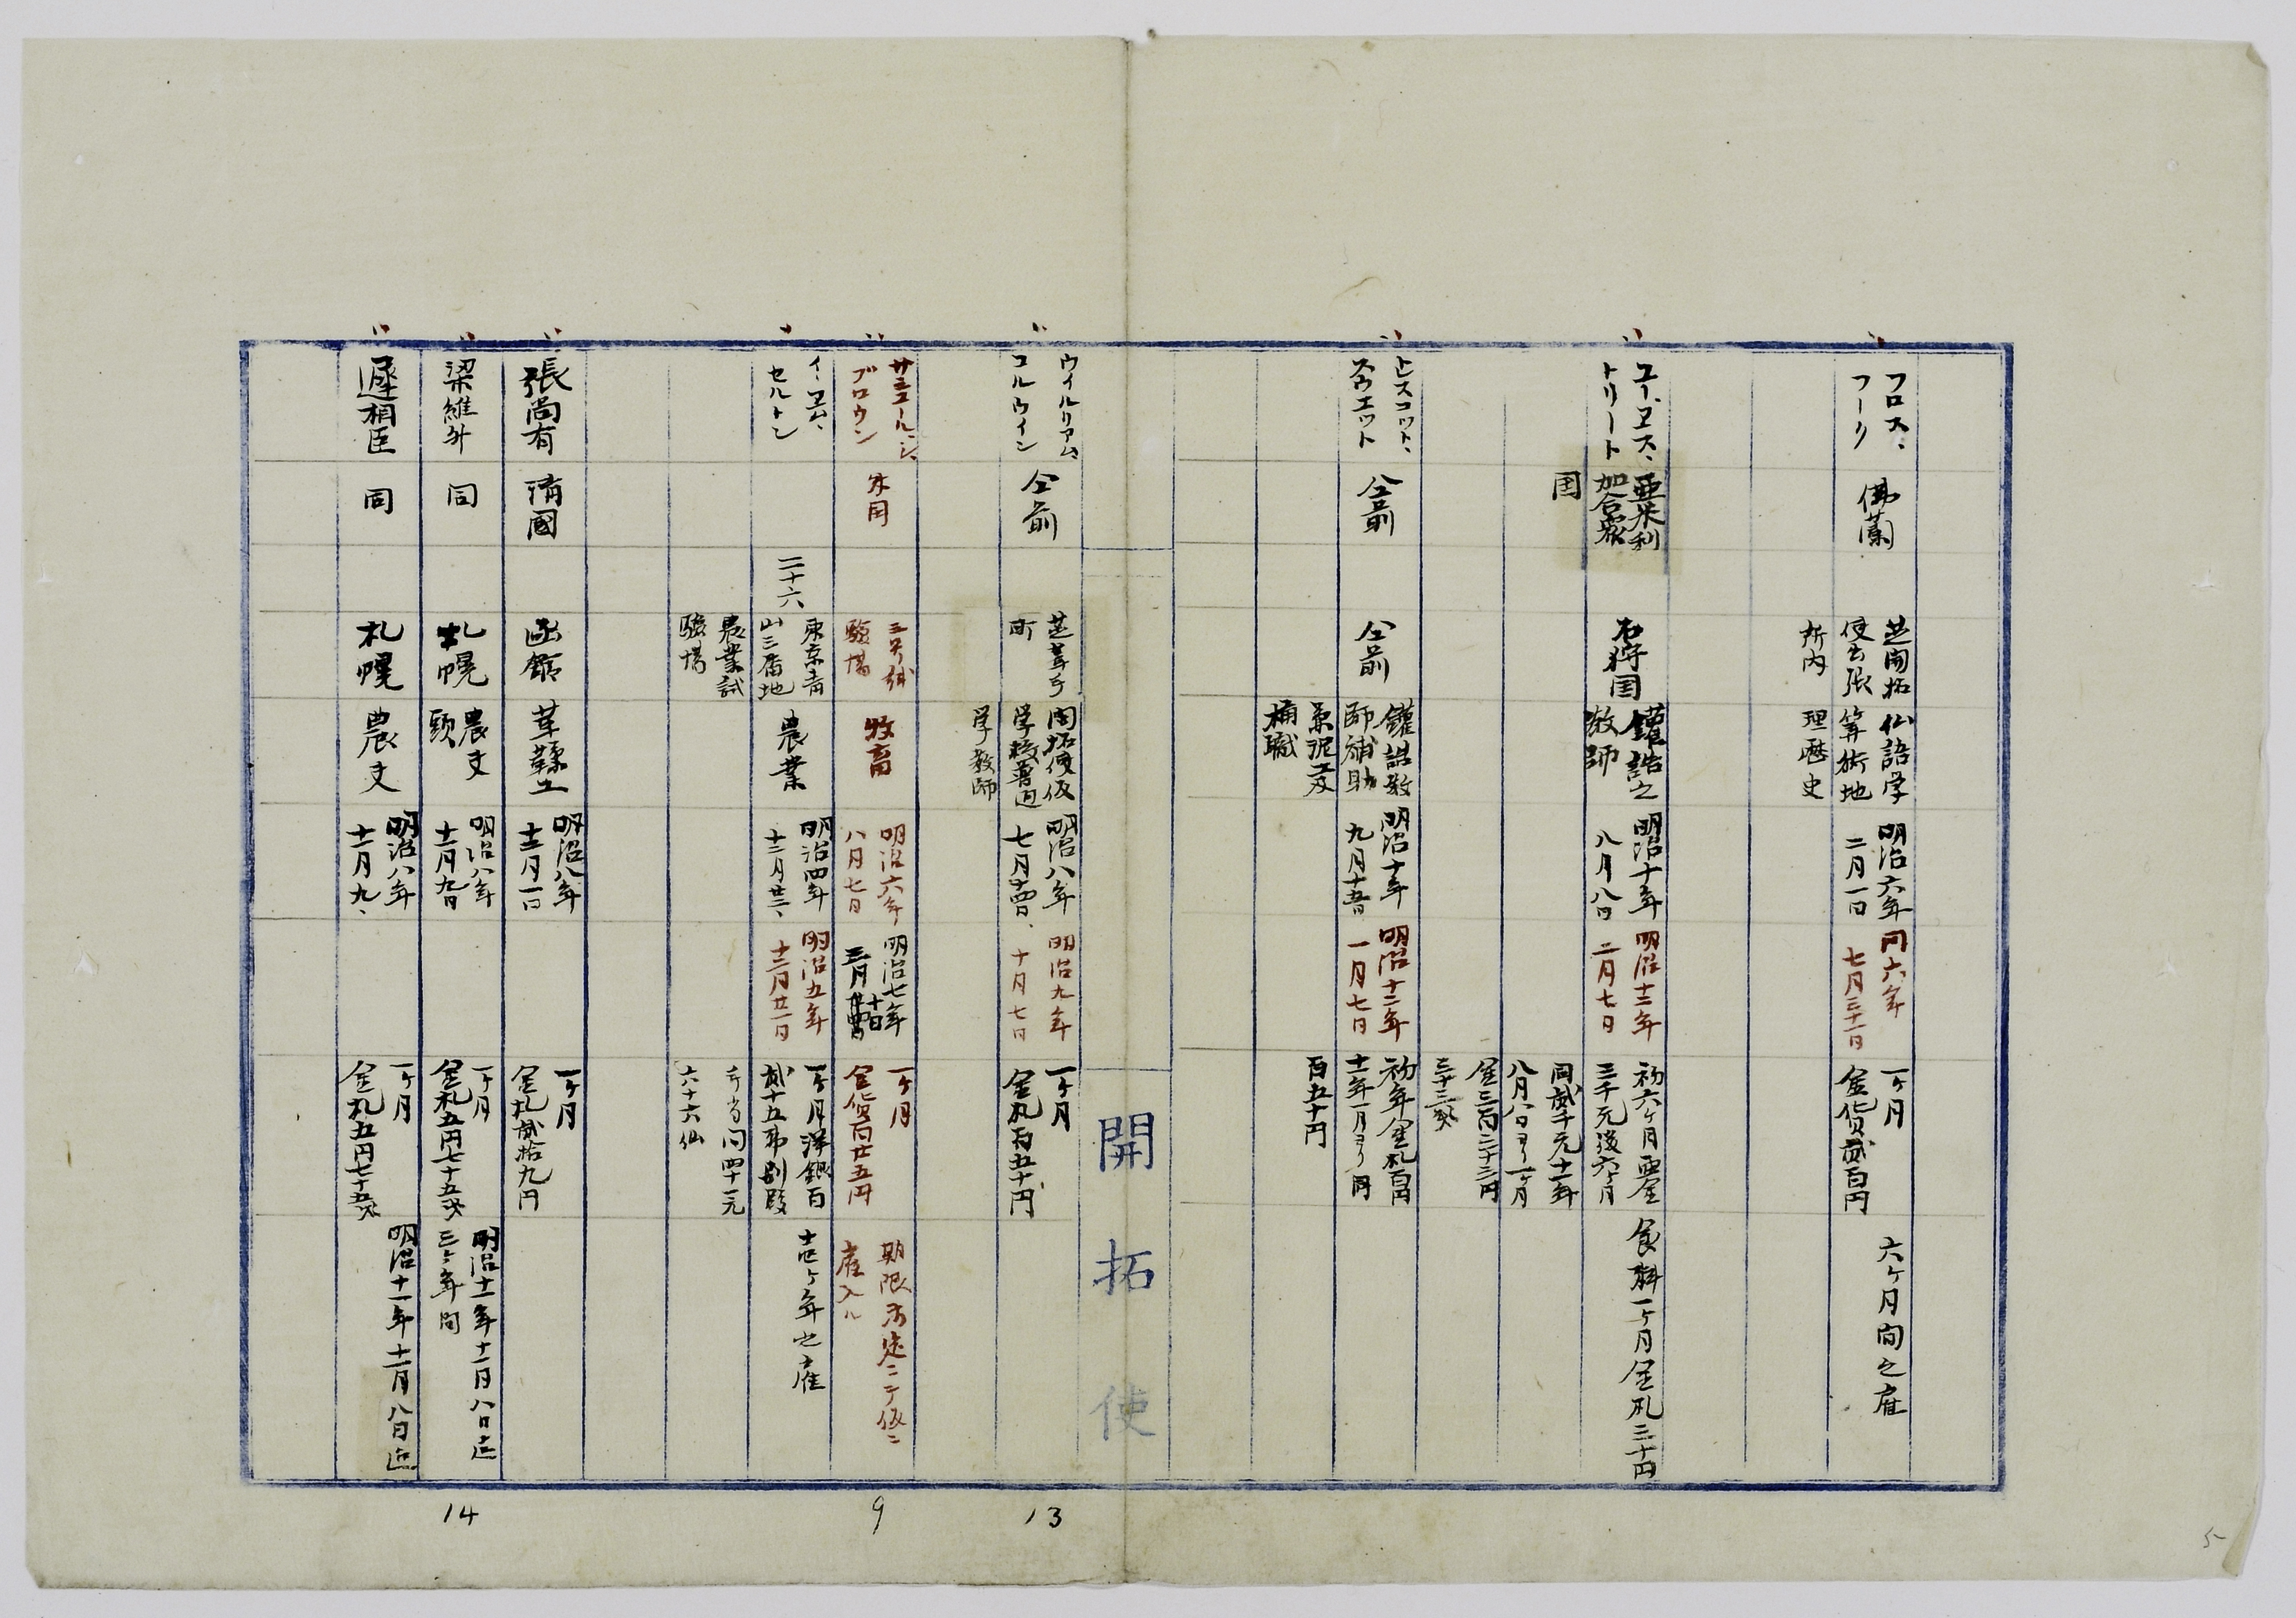 フロス、
フーク
佛蘭
芝開拓
使出張
所内
仏語学
算術地
理歴史
明治六年
二月一日
同六年
七月三十一日
一ヶ月
金貨貳百円
六ヶ月間之雇
ユー、ヱス、
トリート
亜米利
加合衆
国
石狩国
鑵詰之
教師
明治十年
八月八日
明治十二年
二月七日
初六ヶ月要金
三千元後六ヶ月
同貳千元十一年
八月八日ヨリ一ヶ月
金三百三十三円
三十三銭
食料一ヶ月金札三十円
トレスコット、
スウエット
仝前
仝前
鑵詰教
師補助
兼泥工及
桶職
明治十年
九月十五日
明治十二年
一月七日
初年金札百円
十一年一月ヨリ同
百五十円
開拓使
ウイルリアム
コルウイン
仝前
芝葺手
町
開拓使仮
学校普通
学教師
明治八年
七月十四日、
明治九年
十月七日
一ヶ月
金札百五十円
サミユールジ、
ブロウン
米国
三号試
験場
牧畜
明治六年
八月七日
明治七年
三月
十日
一ヶ月
金貨百廿五円
期限不定ニテ仮ニ
雇入ル
イーエム、
セルトン
二十六
東京青
山三番地
農業試
験場
農業
明治四年
十二月廿二、
明治五年
十二月廿一日
一ヶ月洋銀百
貳十五弗別段
手当同四十一元
六十六仙
壱ヶ年之雇
張尚有
清國
函館
革鞣工
明治八年
十二月一日
一ヶ月
金札貳拾九円
梁維升
同
札幌
農夫
頭
明治八年
十一月九日
一ヶ月
金札五円七十五銭
明治十一年十一月八日迄
三ヶ年間
遲相臣
同
札幌
農夫
明治八年
十一月九、
一ヶ月
金札五円七十五銭
明治十一年十一月八日迄
13
9
14
5